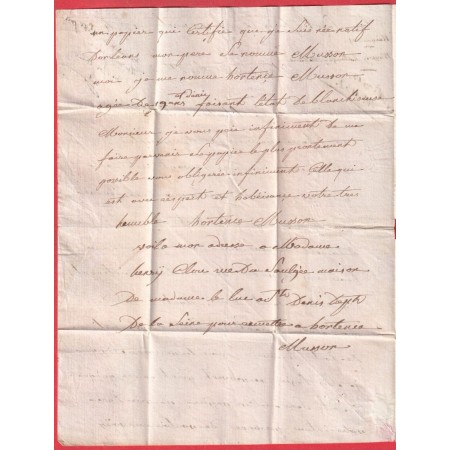 un papier qui certifie que je suis née natif
D'orleans mon pere se nomme Musson
moi je me nomme hortence Musson
agée de ans faisant l'état de blanchiseuse
Monsieur je vous prie infiniment de me
faire parvenir se papier le plus prontement
possible vous obligerie infiniment Celle qui
est avec respect et lobeisance votre tres
humble hortence Musson
voila mon adrese a Madame
henry Clere rue De Saulger maison
De madame le luc a St Denis Dept
De la Seine pour remettre a hortence
Musson